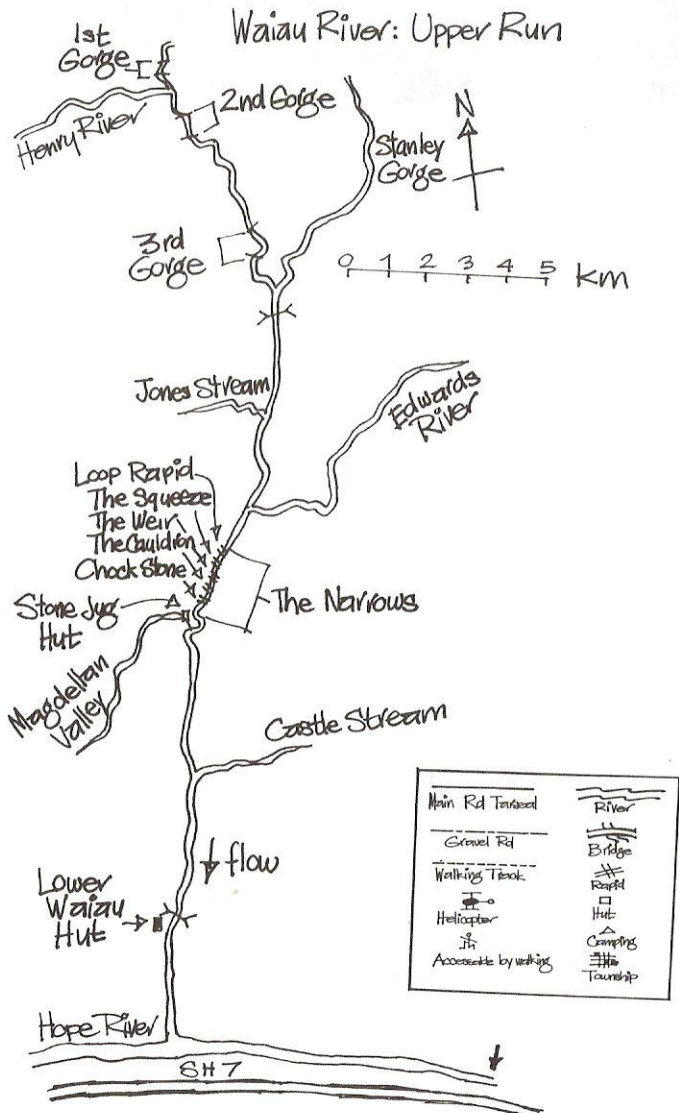 Waiau River: Upper Run
1st
Gorge
2nd Gorge
Henry River
Stanley
Gorge
N
3rd
Gorge
0 1 2 3 4 5 km
Jones Stream
Edwards
River
Loop Rapid
The Squeeze
The Weir
The Cauldron
Chock Stone
The Narrows
Stone Jug
Hut
Magdellan
Valley
Castle Stream
flow
Lower
Waiau
Hut
Hope River
SH7
Main Rd Tarseal
River
Gravel Rd
Bridge
Walking Track
Rapid
Helicopter
Hut
Accessable by walking
Camping
Township